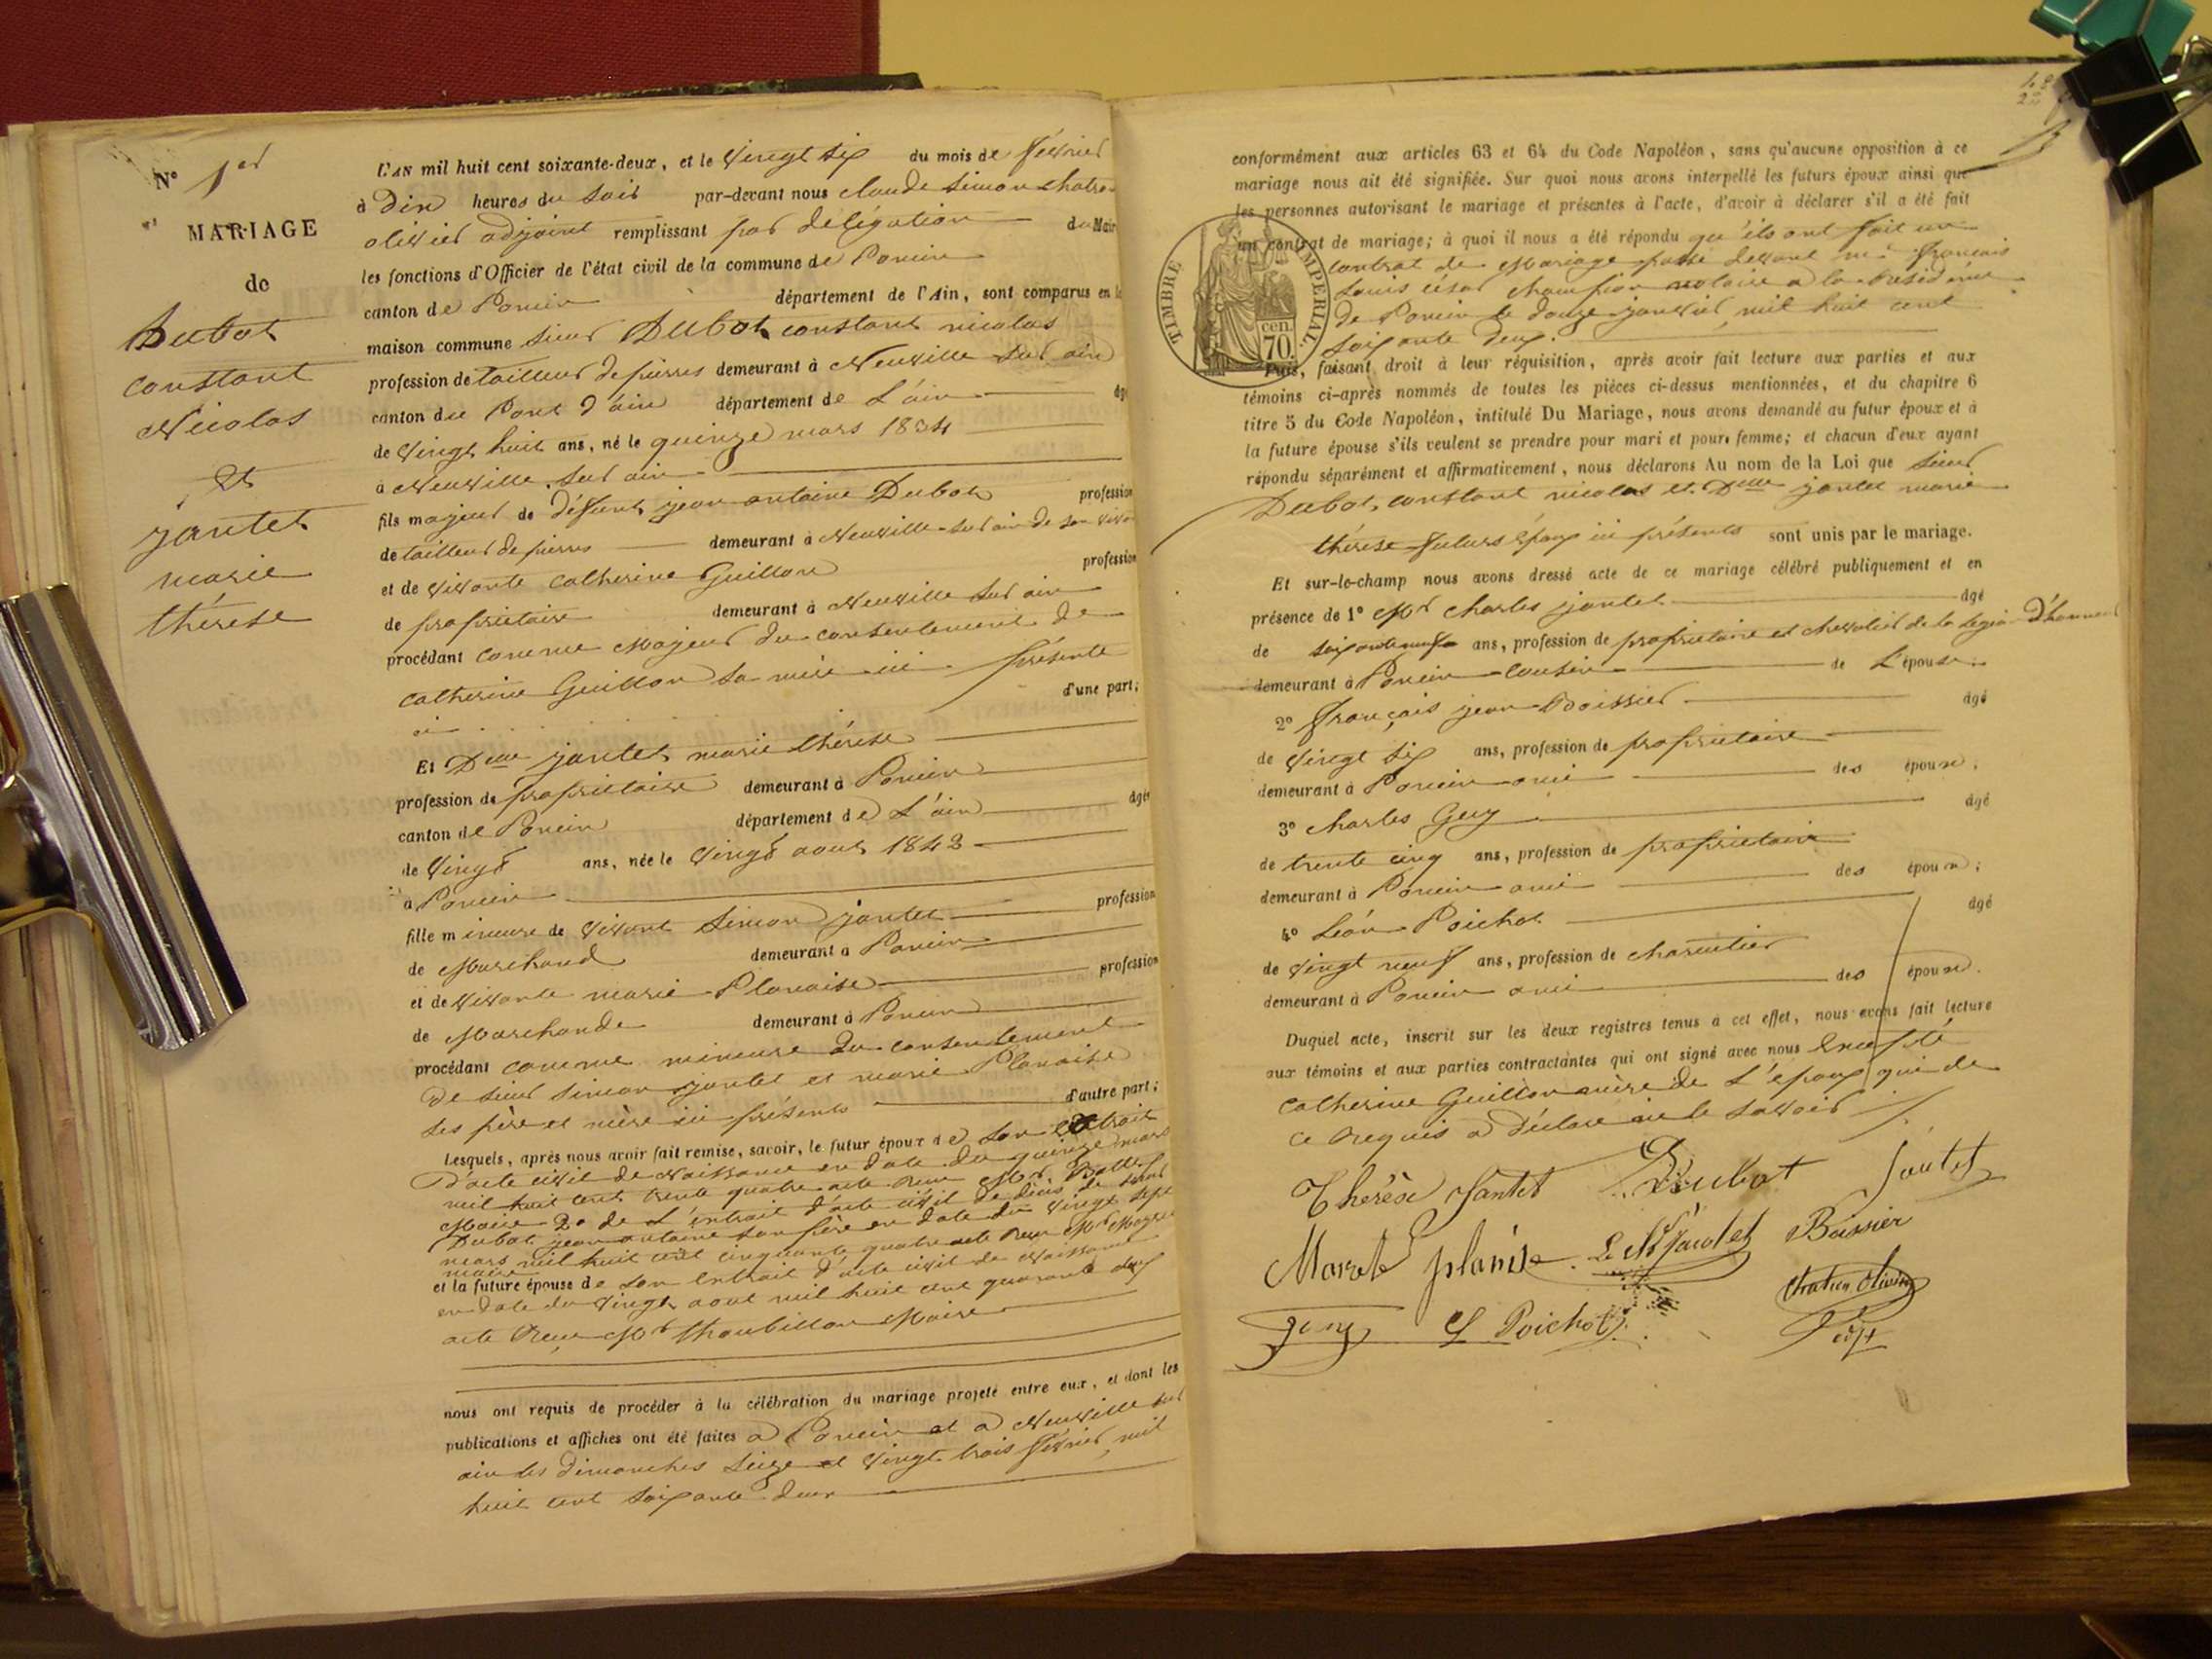 N° 1er
MARIAGE
de
Dubot
constant
Nicolas
et
jantet
marie
thérèse
L'AN mil huit cent soixante-deux, et le vingt six du mois de février
à dix heures du soir par-devant nous claude simon chatre
olivier adjoint remplissant par délégation du Maire
les fonctions d'Officier de l'état civil de la commune de Poncin
canton de Poncin département de l'Ain, sont comparus en la
maison commune sieur Dubot constant nicolas
profession de tailleur de pierres demeurant à Neuville sur ain
canton du Pont d'ain département de L'ain âgé
de vingt huit ans, né le quinze mars 1834
à Neuville sur ain
fils majeur de défunt jean antoine Dubot profession
de tailleur de pierres demeurant à Neuville sur ain de son viva
et de vivante catherine Guillon profession
de propriétaire demeurant à Neuville sur ain
procédant comme majeur du consentement de
catherine Guillon sa mère ici présente
d'une part;
Et Dlle jantet marie thérèse
profession de propriétaire demeurant à Poncin
canton de Poncin département de L'ain âgée
de vingt ans, née le vingt aout 1842
à Poncin
fille mineure de vivant simon jantet profession
de Marchand demeurant à Poncin
et de vivante marie Planaise profession
de Marchande demeurant à Poncin
procédant comme mineure du consentement
de sieur simon jantet et marie Planaise
ses père et mère ici présents d'autre part;
Lesquels, après nous avoir fait remise, savoir, le futur époux de son extrait
d'acte civil de naissance en date du quinze mars
mil huit cent trente quatre acte reçu Mr
Maire 2° de L'extrait d'acte civil de décès de sieur
Dubot jean antoine son père en date du vingt sept
mars mil huit cent cinquante quatre acte reçu Mr
maire
et la future épouse de son extrait d'acte civil de naissance
en date du vingt aout mil huit cent quarante deux
acte reçu Mr Maire
nous ont requis de procéder à la célébration du mariage projeté entre eux, et dont les
publications et affiches ont été faites à Poncin et à Neuville sur
ain les dimanches seize et vingt trois février mil
huit cent soixante deux
conformément aux articles 63 et 64 du Code Napoléon, sans qu'aucune opposition à ce
mariage nous ait été signifiée. Sur quoi nous avons interpellé les futurs époux ainsi que
les personnes autorisant le mariage et présentes à l'acte, d'avoir à déclarer s'il a été fait
un contrat de mariage; à quoi il nous a été répondu qu'ils ont fait un
contrat de Mariage passé devant me françois
Louis césar champion notaire a la résidence
de Poncin le douze janvier mil huit cent
soixante deux.
TIMBRE IMPÉRIAL.
cen.
70.
Puis, faisant droit à leur réquisition, après avoir fait lecture aux parties et aux
témoins ci-après nommés de toutes les pièces ci-dessus mentionnées, et du chapitre 6
titre 5 du Code Napoléon, intitulé Du Mariage, nous avons demandé au futur époux et à
la future épouse s'ils veulent se prendre pour mari et pour femme; et chacun d'eux ayant
répondu séparément et affirmativement, nous déclarons Au nom de la Loi que sieur
Dubot constant nicolas et Dlle jantet marie
thérèse futurs époux ici présents sont unis par le mariage.
Et sur-le-champ nous avons dressé acte de ce mariage célébré publiquement et en
présence de 1° Mr charles jantet âgé
de soixante neuf ans, profession de propriétaire et chevalier de la légion D'honneur
demeurant à Poncin cousin de L'épouse.
2° françois jean Boissier âgé
de vingt six ans, profession de propriétaire
demeurant à Poncin ami des époux.
3° charles Guy âgé
de trente cinq ans, profession de propriétaire
demeurant à Poncin ami des époux;
4° Léon Poichot âgé
de vingt neuf ans, profession de charcutier
demeurant à Poncin ami des époux.
Duquel acte, inscrit sur les deux registres tenus à cet effet, nous avons fait lecture
aux témoins et aux parties contractantes qui ont signé avec nous excepté
catherine Guillon mère de L'époux qui de
ce requis a déclaré ne le savoir
Thérèse Jantet Dubot Jantet
Mariete planise Le Ch Jantet Boissier
guy L Poichot Chatron Olivier